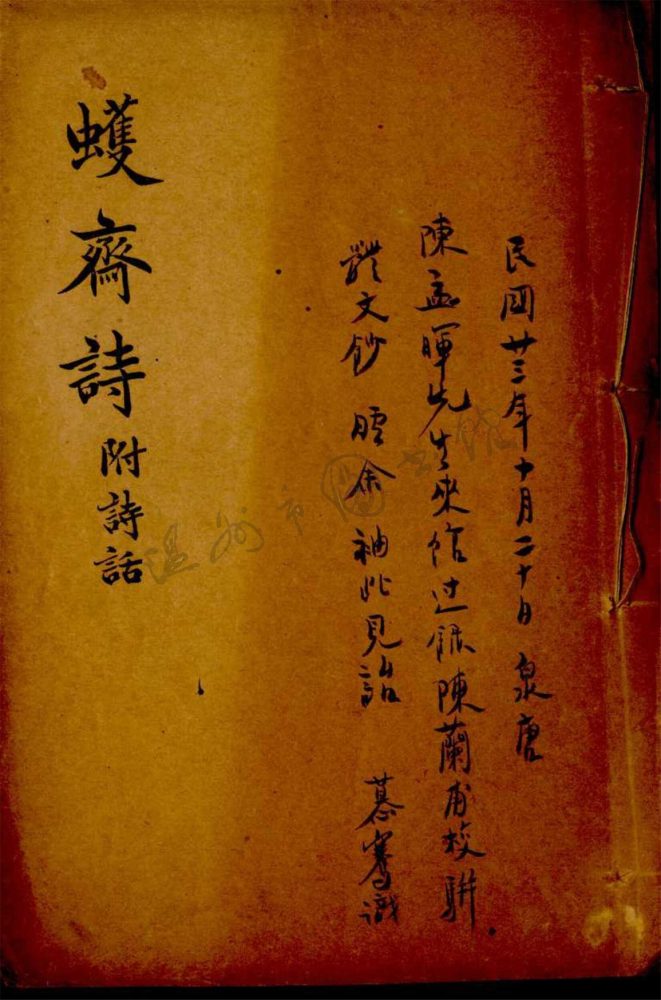 民國廿三年十月二十日 泉唐
陳孟暉先生來館过錄陳蘭甫校駢
體文鈔 賍余 袖此見詒 慕騫識
蠖齋詩 附詩話
溫州市圖書館